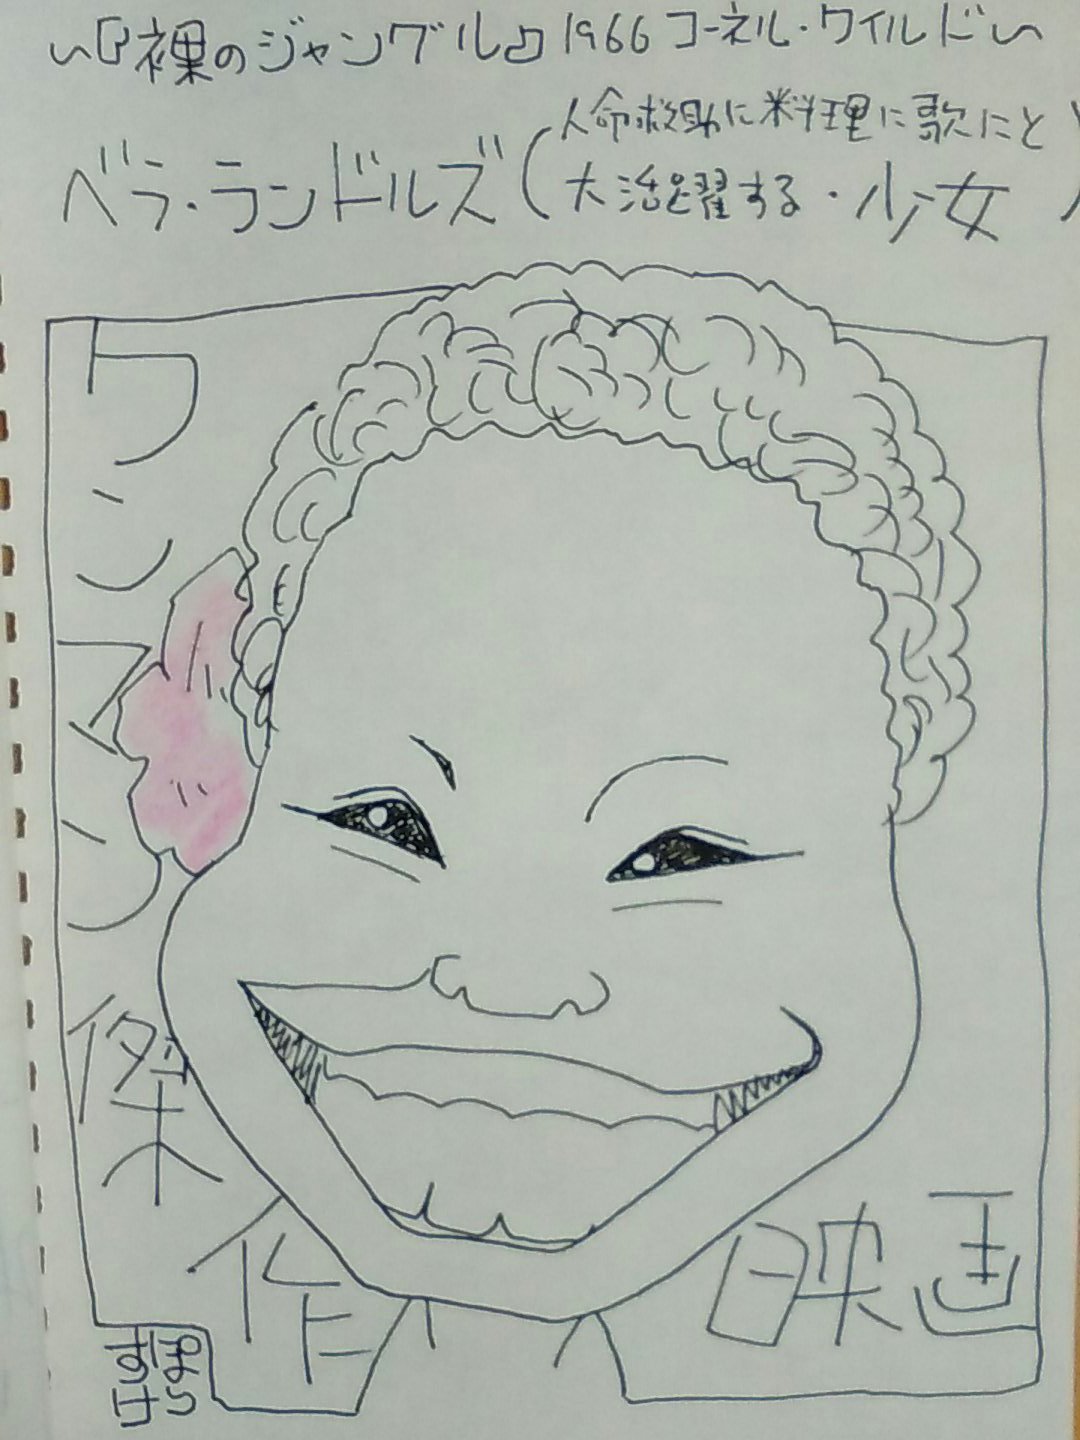 〜『裸のジャングル』1966 コーネル・ワイルド〜
人命救助に料理に歌にと
ベラ・ランドルズ(大活躍する・少女)
ワンマン
傑
作
映画
ぽら
すけ